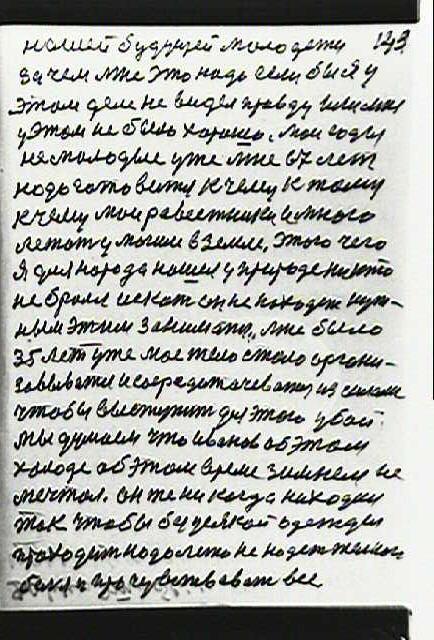 нашей будущей молодежи 143
зачем мне это надо если бы я у
этом деле не видел правду или мне
у этом не было хорошо, мои годы
не молодые уже мне 67 лет
надо готовится к чему к тому
к чему мои равестники и много
лежат у могиле в земле, этого чего
я для народа нашел у природе никто
не брался искат он не находит нуж-
ным этим заниматся, мне было
35 лет уже мое тело стало органи-
зовыватся и сосредатачеватся из силами
чтобы выступит для этого убой
мы думаем что иванов об этом
холоде об этом время зимнем не
мечтал. он же никогда находил
так чтобы без всякой одежды
проходит надо
и прочувствоват все